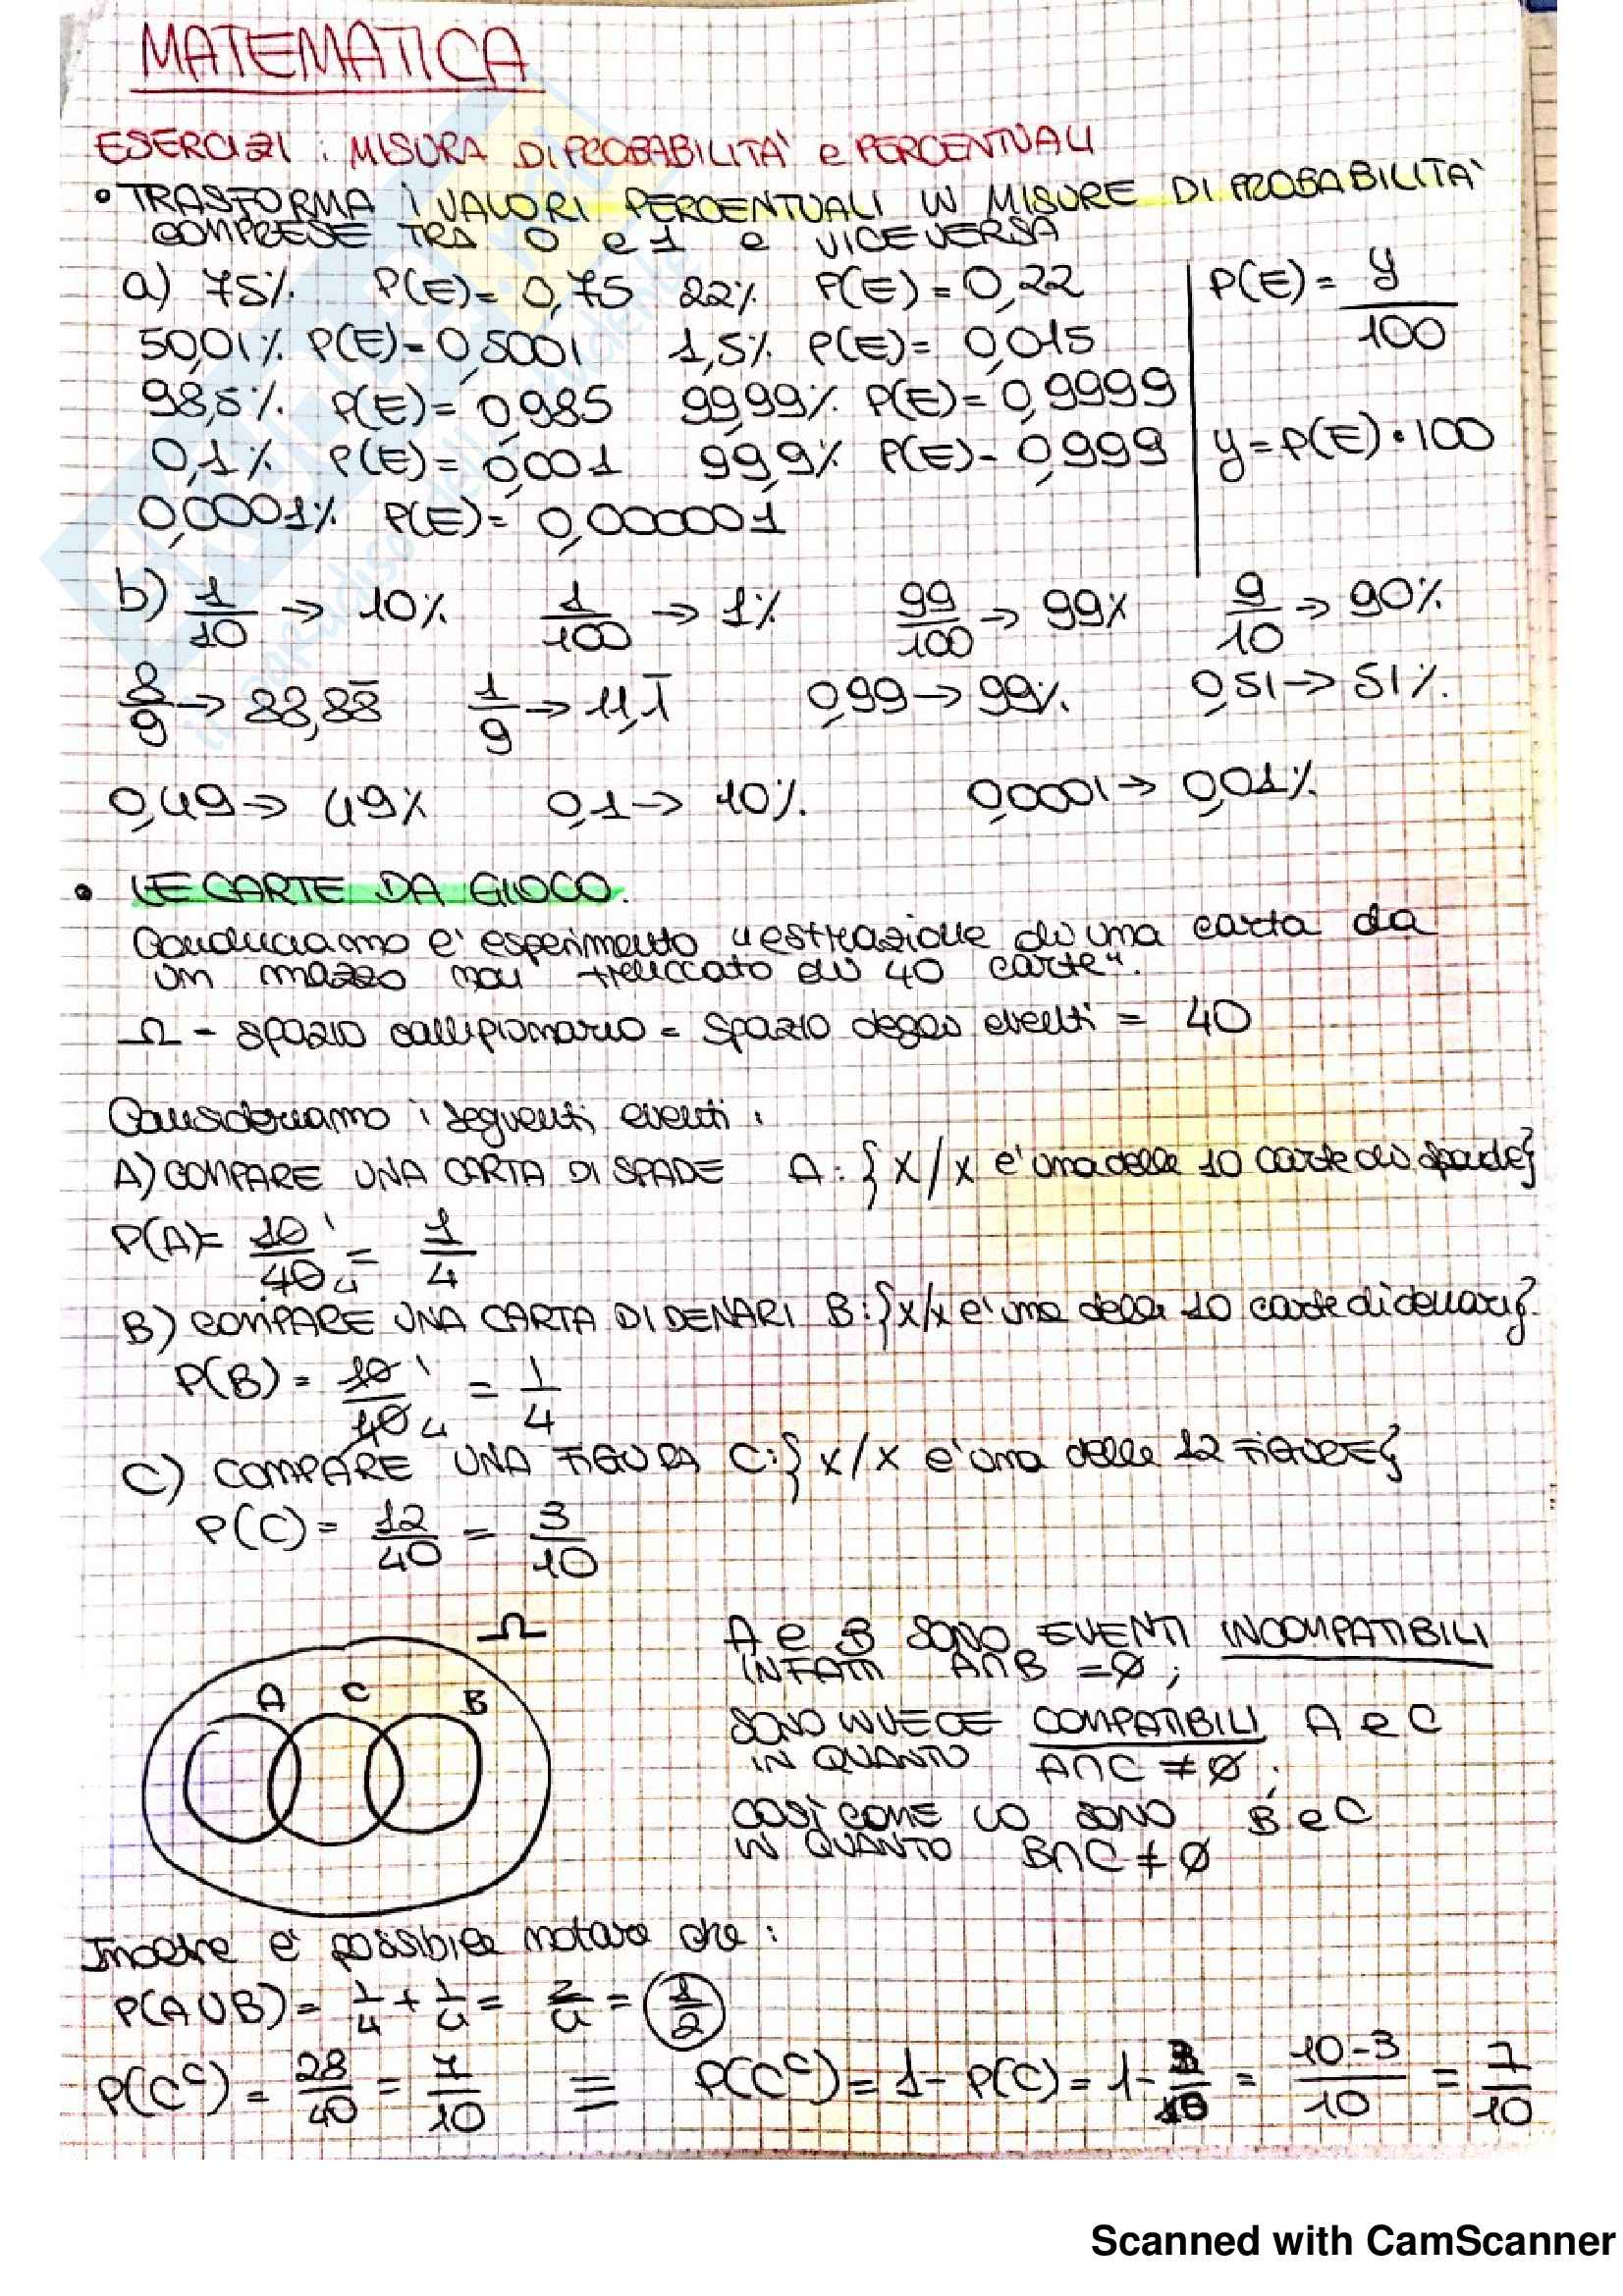 MATEMATICA
ESERCIZI: MISURA DI PROBABILITA' e PERCENTUALI
• TRASFORMA i VALORI PERCENTUALI IN MISURE DI PROBABILITA'
COMPRESE TRA 0 e 1 e VICEVERSA
a) 75% P(E)= 0,75 22% P(E)=0,22 P(E)= y/100
50,01% P(E)=0,5001 1,5% P(E)= 0,015
98,5% P(E)= 0,985 99,99% P(E)= 0,9999
0,1% P(E)= 0,001 99,9% P(E)= 0,999 y=P(E)•100
0,0001% P(E)= 0,000001
b) 1/10 → 10% 1/100 → 1% 99/100 → 99% 9/10 → 90%
8/9 → 88,88̅ 1/9 → 11,1̅ 0,99 → 99% 0,51 → 51%.
0,49 → 49% 0,1 → 10%. 0,0001 → 0,01%
• LE CARTE DA GIOCO.
Conduciamo l'esperimento "estrazione di una carta da
un mazzo non truccato di 40 carte".
Ω = spazio campionario = spazio degli eventi = 40
Consideriamo i seguenti eventi:
A) COMPARE UNA CARTA DI SPADE A: {x/x è una delle 10 carte di spade}
P(A)= 10 1/40 4 = 1/4
B) COMPARE UNA CARTA DI DENARI B:{x/x è una delle 10 carte di denari}.
P(B) = 10 1/40 4 = 1/4
C) COMPARE UNA FIGURA C:{x/x è una delle 12 FIGURE}
P(C) = 12/40 = 3/10
Ω
A C B
A e B SONO EVENTI INCOMPATIBILI
INFATTI A∩B =∅;
SONO INVECE COMPATIBILI A e C
IN QUANTO A∩C ≠ ∅;
COSÌ COME LO SONO B e C
IN QUANTO B∩C ≠ ∅
Inoltre è possibile notare che:
P(A∪B)= 1/4 + 1/4 = 2/4 = 1/2
P(Cᶜ) = 28/40 = 7/10 ≡ P(Cᶜ)= 1- P(C) = 1- 3/10 = 10-3/10 = 7/10
Scanned with CamScanner